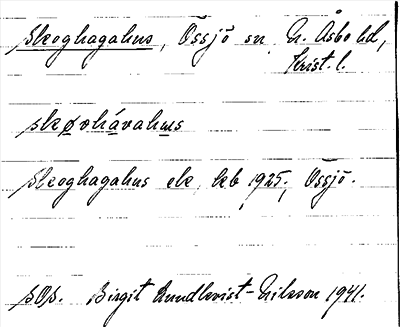 Skoghagahus, Össjö sn N. Åsbo hd,
Krist. l.
skøvhávahus
Skoghagahus ek kb 1925, Össjö.
sOp. Birgit Rundkvist-Nilsson 1941.